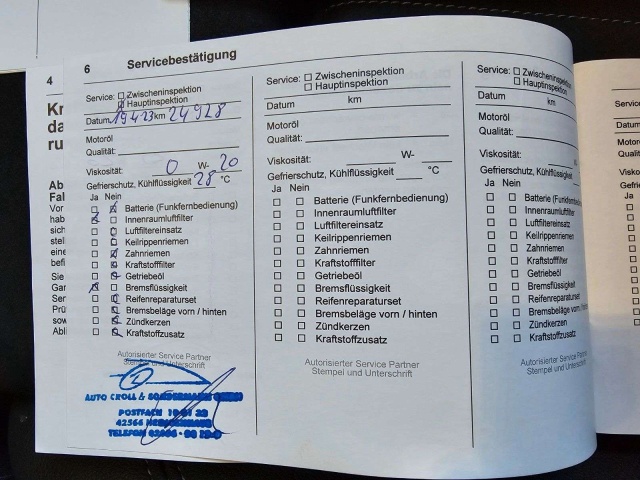 4
6 Servicebestätigung
Kr
da
ru
Ab
Fal
Vor
hab
sich
stel
eine
befi
Sie
Gar
Ser
Prü
sow
Abli
Service: Zwischeninspektion
Hauptinspektion
Datum 19.4.23 km 24928
Motoröl
Qualität:
Viskosität: 0 W- 20
Gefrierschutz, Kühlflüssigkeit 28 °C
Ja Nein
Batterie (Funkfernbedienung)
Innenraumluftfilter
Luftfiltereinsatz
Keilrippenriemen
Zahnriemen
Kraftstofffilter
Getriebeöl
Bremsflüssigkeit
Reifenreparaturset
Bremsbeläge vorn / hinten
Zündkerzen
Kraftstoffzusatz
Autorisierter Service Partner
Stempel und Unterschrift
AUTO CROLL &
POSTFACH
42566
TELEFON
Service: Zwischeninspektion
Hauptinspektion
Datum km
Motoröl
Qualität:
Viskosität: W-
Gefrierschutz, Kühlflüssigkeit °C
Ja Nein
Batterie (Funkfernbedienung)
Innenraumluftfilter
Luftfiltereinsatz
Keilrippenriemen
Zahnriemen
Kraftstofffilter
Getriebeöl
Bremsflüssigkeit
Reifenreparaturset
Bremsbeläge vorn / hinten
Zündkerzen
Kraftstoffzusatz
Autorisierter Service Partner
Stempel und Unterschrift
Service: Zwischeninspektion
Hauptinspektion
Datum km
Motoröl
Qualität:
Viskosität: W-
Gefrierschutz, Kühlflüssigkeit
Ja Nein
Batterie
Innenraumluftfilter
Luftfiltereinsatz
Keilrippenriemen
Zahnriemen
Kraftstofffilter
Getriebeöl
Bremsflüssigkeit
Reifenreparaturset
Bremsbeläge vorn / hinten
Zündkerzen
Kraftstoffzusatz
Autorisierter Service
Stempel und Unter
Service
Datum
Motor
Qualit
Visko
Gefrie
Ja N